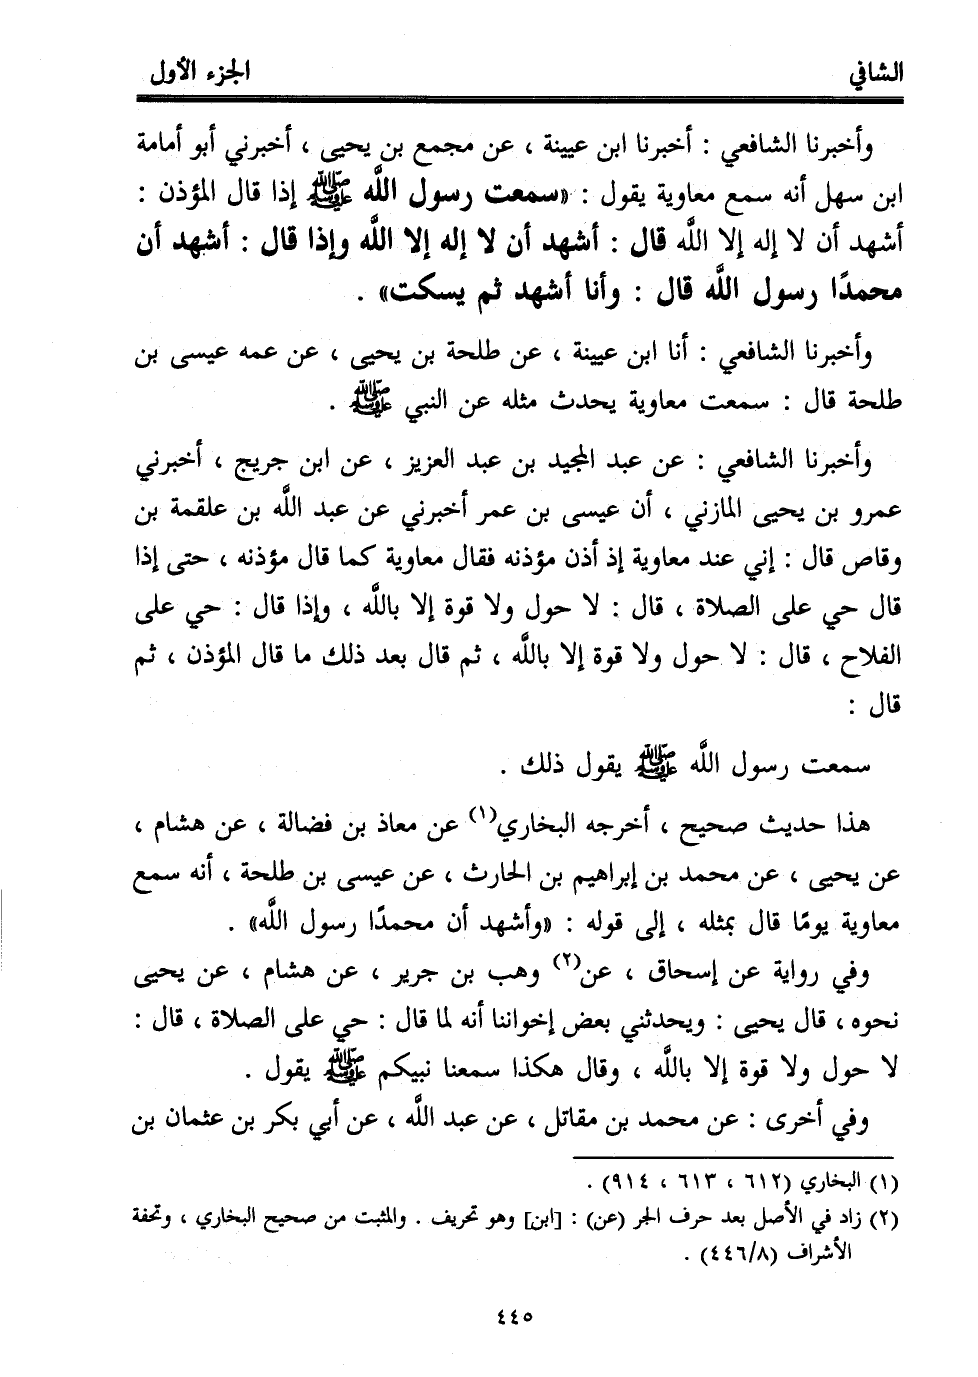 الشافي الجزء الأول
وأخبرنا الشافعي : أخبرنا ابن عيينة ، عن مجمع بن يحيى ، أخبرني أبو أمامة
ابن سهل أنه سمع معاوية يقول : «سمعت رسول اللَّه ﷺ إذا قال المؤذن :
أشهد أن لا إله إلا اللَّه قال : أشهد أن لا إله إلا اللَّه وإذا قال : أشهد أن
محمدًا رسول اللَّه قال : وأنا أشهد ثم يسكت» .
وأخبرنا الشافعي : أنا ابن عيينة ، عن طلحة بن يحيى ، عن عمه عيسى بن
طلحة قال : سمعت معاوية يحدث مثله عن النبي ﷺ .
وأخبرنا الشافعي : عن عبد المجيد بن عبد العزيز ، عن ابن جريج ، أخبرني
عمرو بن يحيى المازني ، أن عيسى بن عمر أخبرني عن عبد اللَّه بن علقمة بن
وقاص قال : إني عند معاوية إذ أذن مؤذنه فقال معاوية كما قال مؤذنه ، حتى إذا
قال حي على الصلاة ، قال : لا حول ولا قوة إلا باللَّه ، وإذا قال : حي على
الفلاح ، قال : لا حول ولا قوة إلا باللَّه ، ثم قال بعد ذلك ما قال المؤذن ، ثم
قال :
سمعت رسول اللَّه ﷺ يقول ذلك .
هذا حديث صحيح ، أخرجه البخاري(١) عن معاذ بن فضالة ، عن هشام ،
عن يحيى ، عن محمد بن إبراهيم بن الحارث ، عن عيسى بن طلحة ، أنه سمع
معاوية يومًا قال بمثله ، إلى قوله : «وأشهد أن محمدًا رسول اللَّه» .
وفي رواية عن إسحاق ، عن(٢) وهب بن جرير ، عن هشام ، عن يحيى
نحوه ، قال يحيى : ويحدثني بعض إخواننا أنه لما قال : حي على الصلاة ، قال :
لا حول ولا قوة إلا باللَّه ، وقال هكذا سمعنا نبيكم ﷺ يقول .
وفي أخرى : عن محمد بن مقاتل ، عن عبد اللَّه ، عن أبي بكر بن عثمان بن
(١) البخاري (٦١٢ ، ٦١٣ ، ٩١٤) .
(٢) زاد في الأصل بعد حرف الجر (عن) : [ابن] وهو تحريف . والمثبت من صحيح البخاري ، وتحفة
الأشراف (٤٤٦/٨) .
٤٤٥